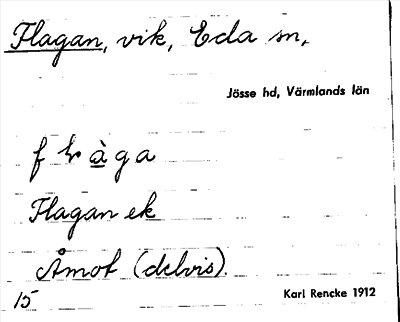 Flagan, vik, Eda sn,
Jösse hd, Värmlands län
Flagan ek
Åmot (delvis).
15
Karl Rencke 1912